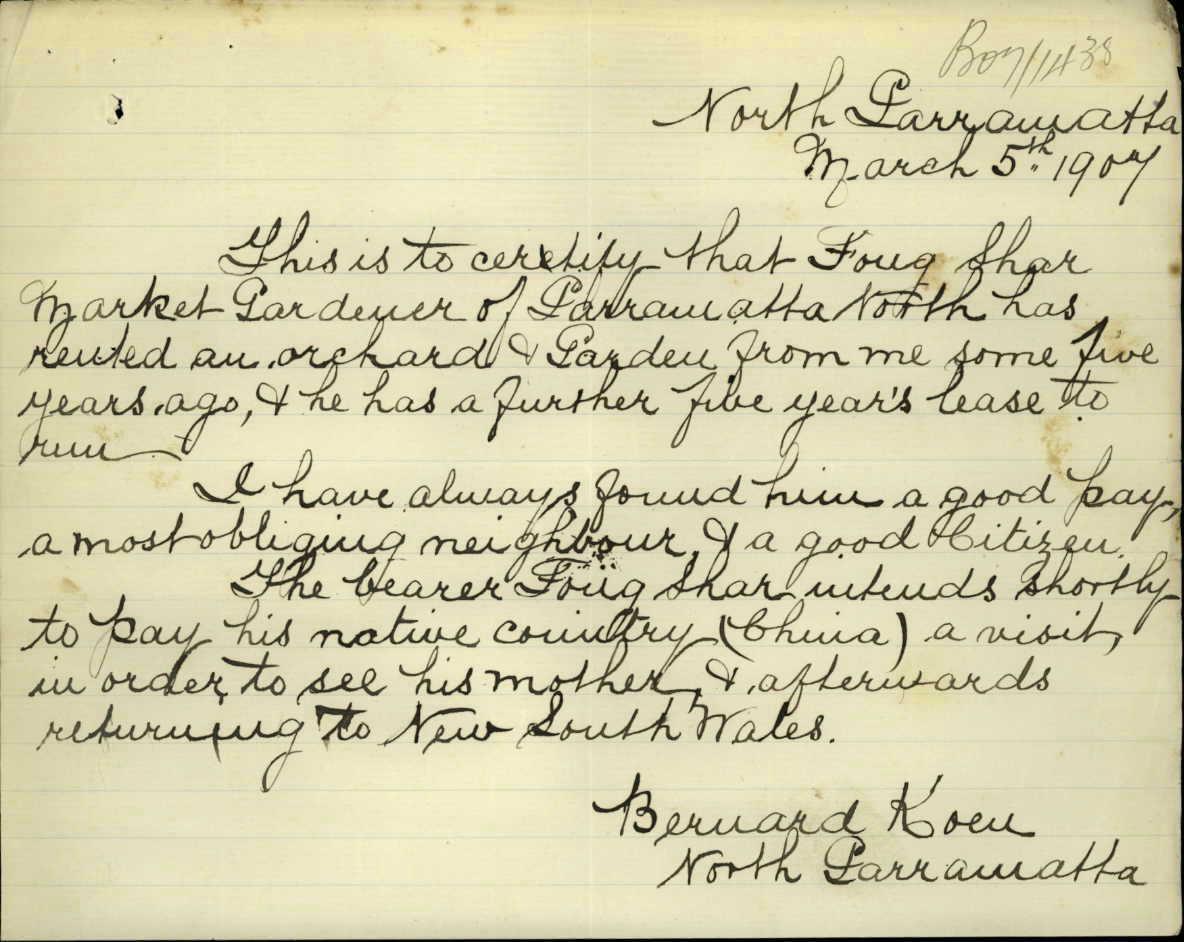 B07/1438
North Parramatta
March 5th 1907
This is to ceretify that Foug Shar
Market Gardener of Parramatta North has
rented an orchard & Garden from me some five
years ago, & he has a further five year's lease to
run
I have always found him a good pay,
a most obliging neighbour, & a good Citizen.
The bearer Foug Shar intends shortly
to pay his native country (China) a visit,
in order to see his mother, & afterwards
returning to New South Wales.
Bernard Koen
North Parramatta